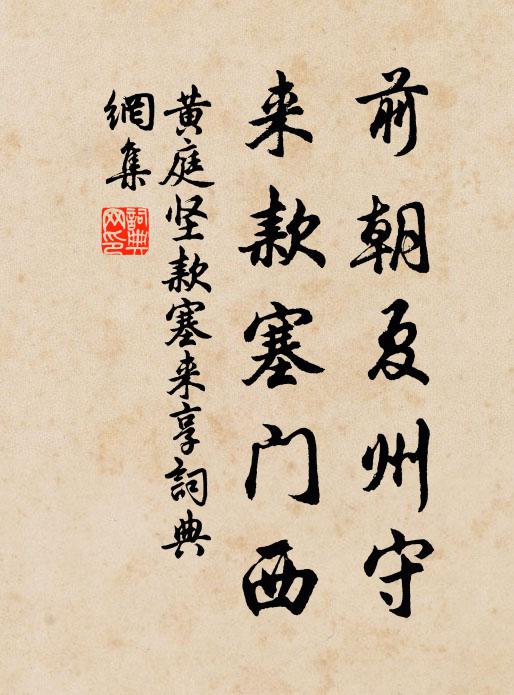 前朝夏州守
来款塞门西
黄庭坚款塞来享詞典
網集
詞典
网印